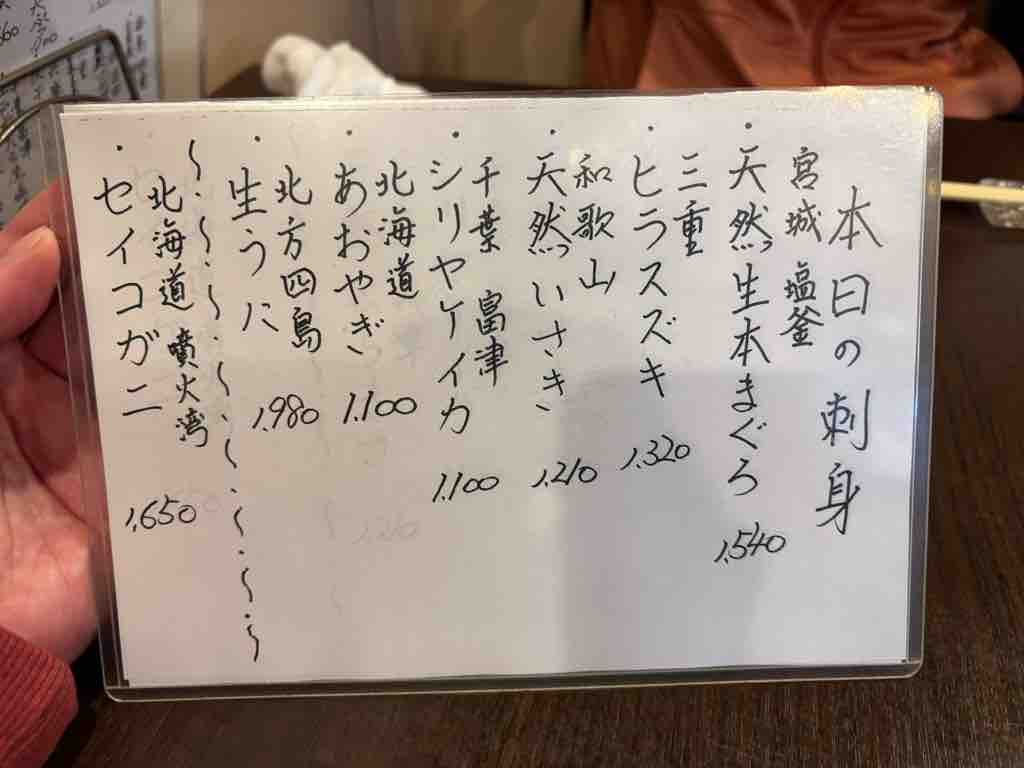 本日の刺身
宮城 塩釜
・天然生本まぐろ 1,540
三重
・ヒラスズキ 1,320
和歌山
・天然いさき 1,210
千葉 富津
・シリヤケイカ 1,100
北海道
・あおやぎ 1,100
北方四島
・生うに 1,980
〜・〜・〜・〜・〜・〜・〜・〜
北海道 噴火湾
・セイコガニ 1,650